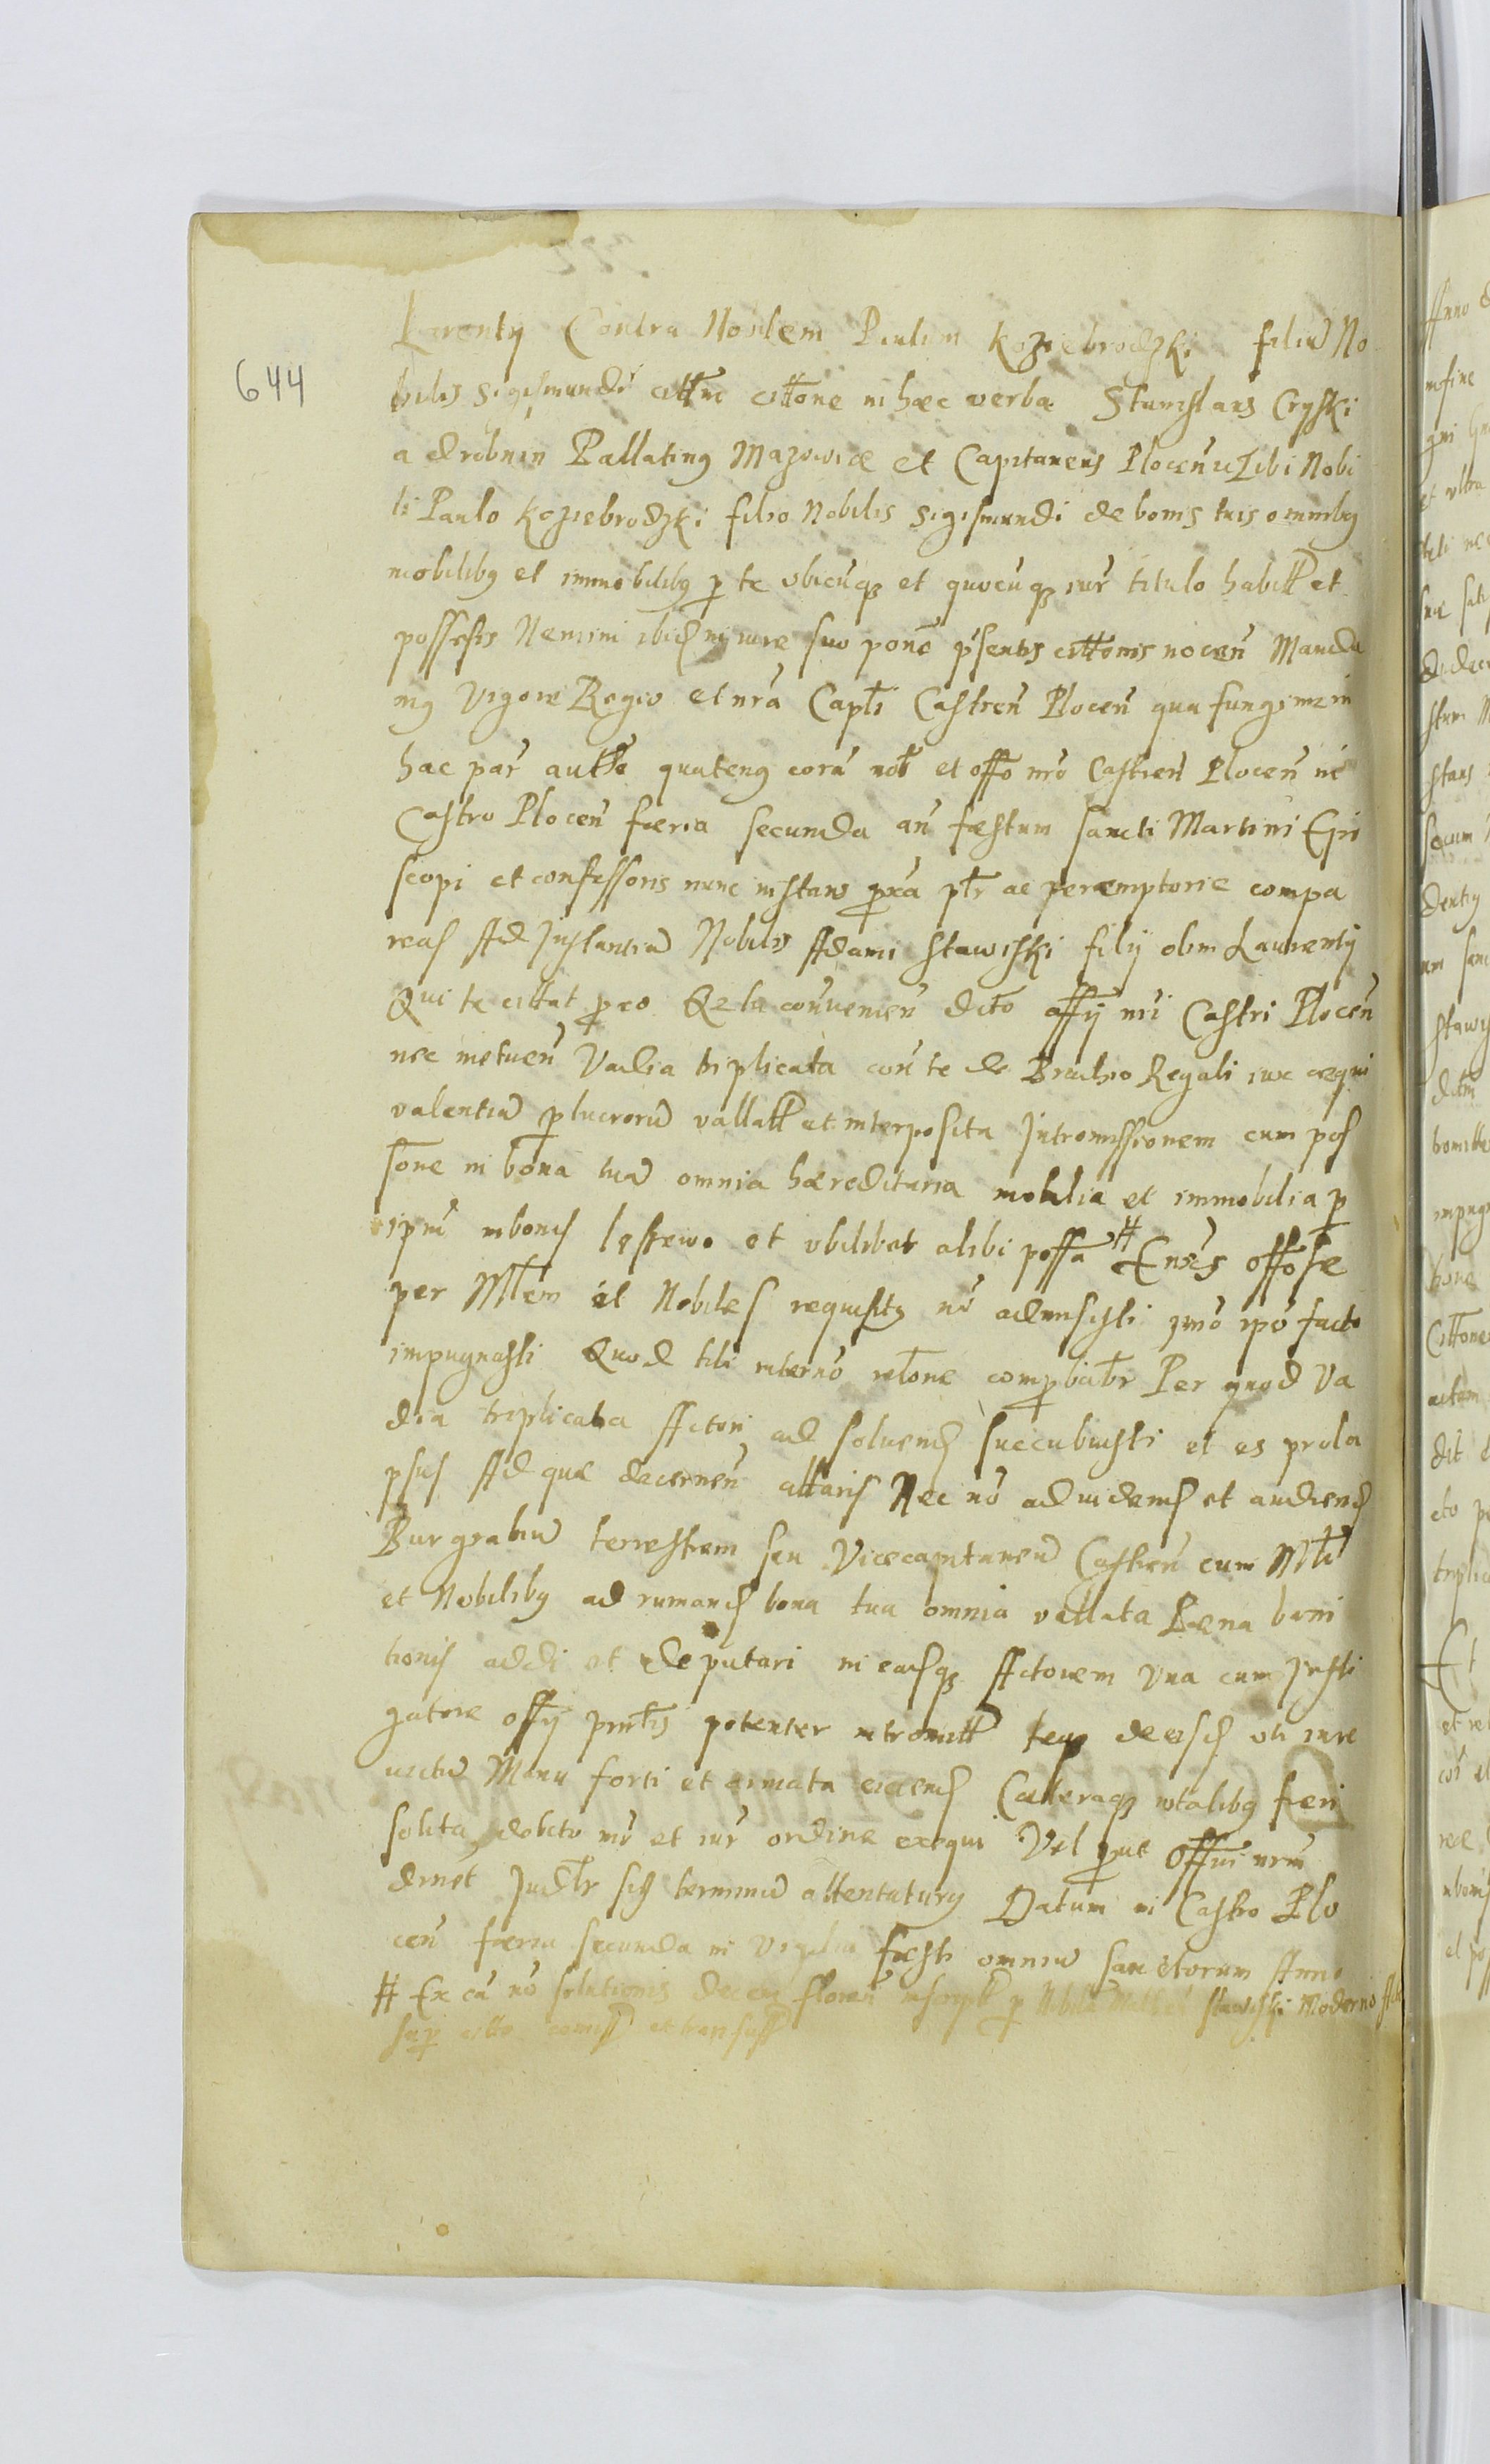 644
Lorentij Contra Nobilem Paulum Koziebrodzki filiu No
bilis Sigismundi citt̃ne in hæc verba Stanislaus Cryski
a drobnin Pallating Mazowiæ et Capitaneus Plocen̄ Tibi Nobi
li Paulo Koziebrodzki filio Nobilis Sigismundi de bonis tuis omnibg
mobilibg et immobilibg p te vbicuqz et quocuqz iur titulo habitt et
possesis Nemini ibid in iure suo pone p̃sentis citt̃onis nocen̄ Manda
mg Vigore Regio et nr̃a Capt̃i Castren̄ Plocen̄ qua fungimr in
hac par autt̃e quateng corã nob et offo nr̃o Castren̄ Plocen̄ in
Castro Plocen̄ færia secunda an̄ fæstum sancti Martini Epi
scopi et confessoris nunc instans pxa pt̃r ac peræmptorie compa
reas Ad Instantiã Nobilis Adami Stawiski filij olim Laurentij
Qui te cittat p eo Qz tu conuenien̄ dicto offij nr̃i Castri Plocen̄
nec metuen̄ Vadia triplicata con̄ te de Brachio Regali iux æqui
valentiã p lucrorũ vallatt et interposita Intromissionem cum pos
sone in bona tua omnia hæreditaria mobilia et immobilia p
ipm̃ in bonis Leszewo et vbilibet alibi possa # Enses offose
per Mt̃em et Nobiles requisitg nõ admisisti ymõ ipõ facto
impugnasti Quod tibi interno ret̃one compbabit̃r Per quod Va
dia triplicata Actori ad soluend succubuisti et es prola
psus Ad quæ decernen̄ cittaris Nec nõ ad uidend et audiend
Burgrabiũ terrestrem seu Vicecapitaneũ Castren̄ cum Mt̃i
et Nobilibg ad rumand bona tua omnia vallata Pæna bani
tionis addi et deputari in easqz Actorem vna cum Insti
gatore offij pnt̃is potenter intromitt teqz de eisd vti iure
uictũ Manu forti et armata eiciend Cætteraqz in talibg fieri
solita debito mõ et iur ordine exequi Vel put Offm̃ nrm̃
dinet Jud̃r sis terminũ attentaturg Datum in Castro Plo
cen̄ færia secunda in Vigilia fæsti omniũ sanctorum Anno
# Ex cã nõ solutionis decem floren̄ inscript p Nobilem Stawiski Moderno
sup citto comiss et transfuss